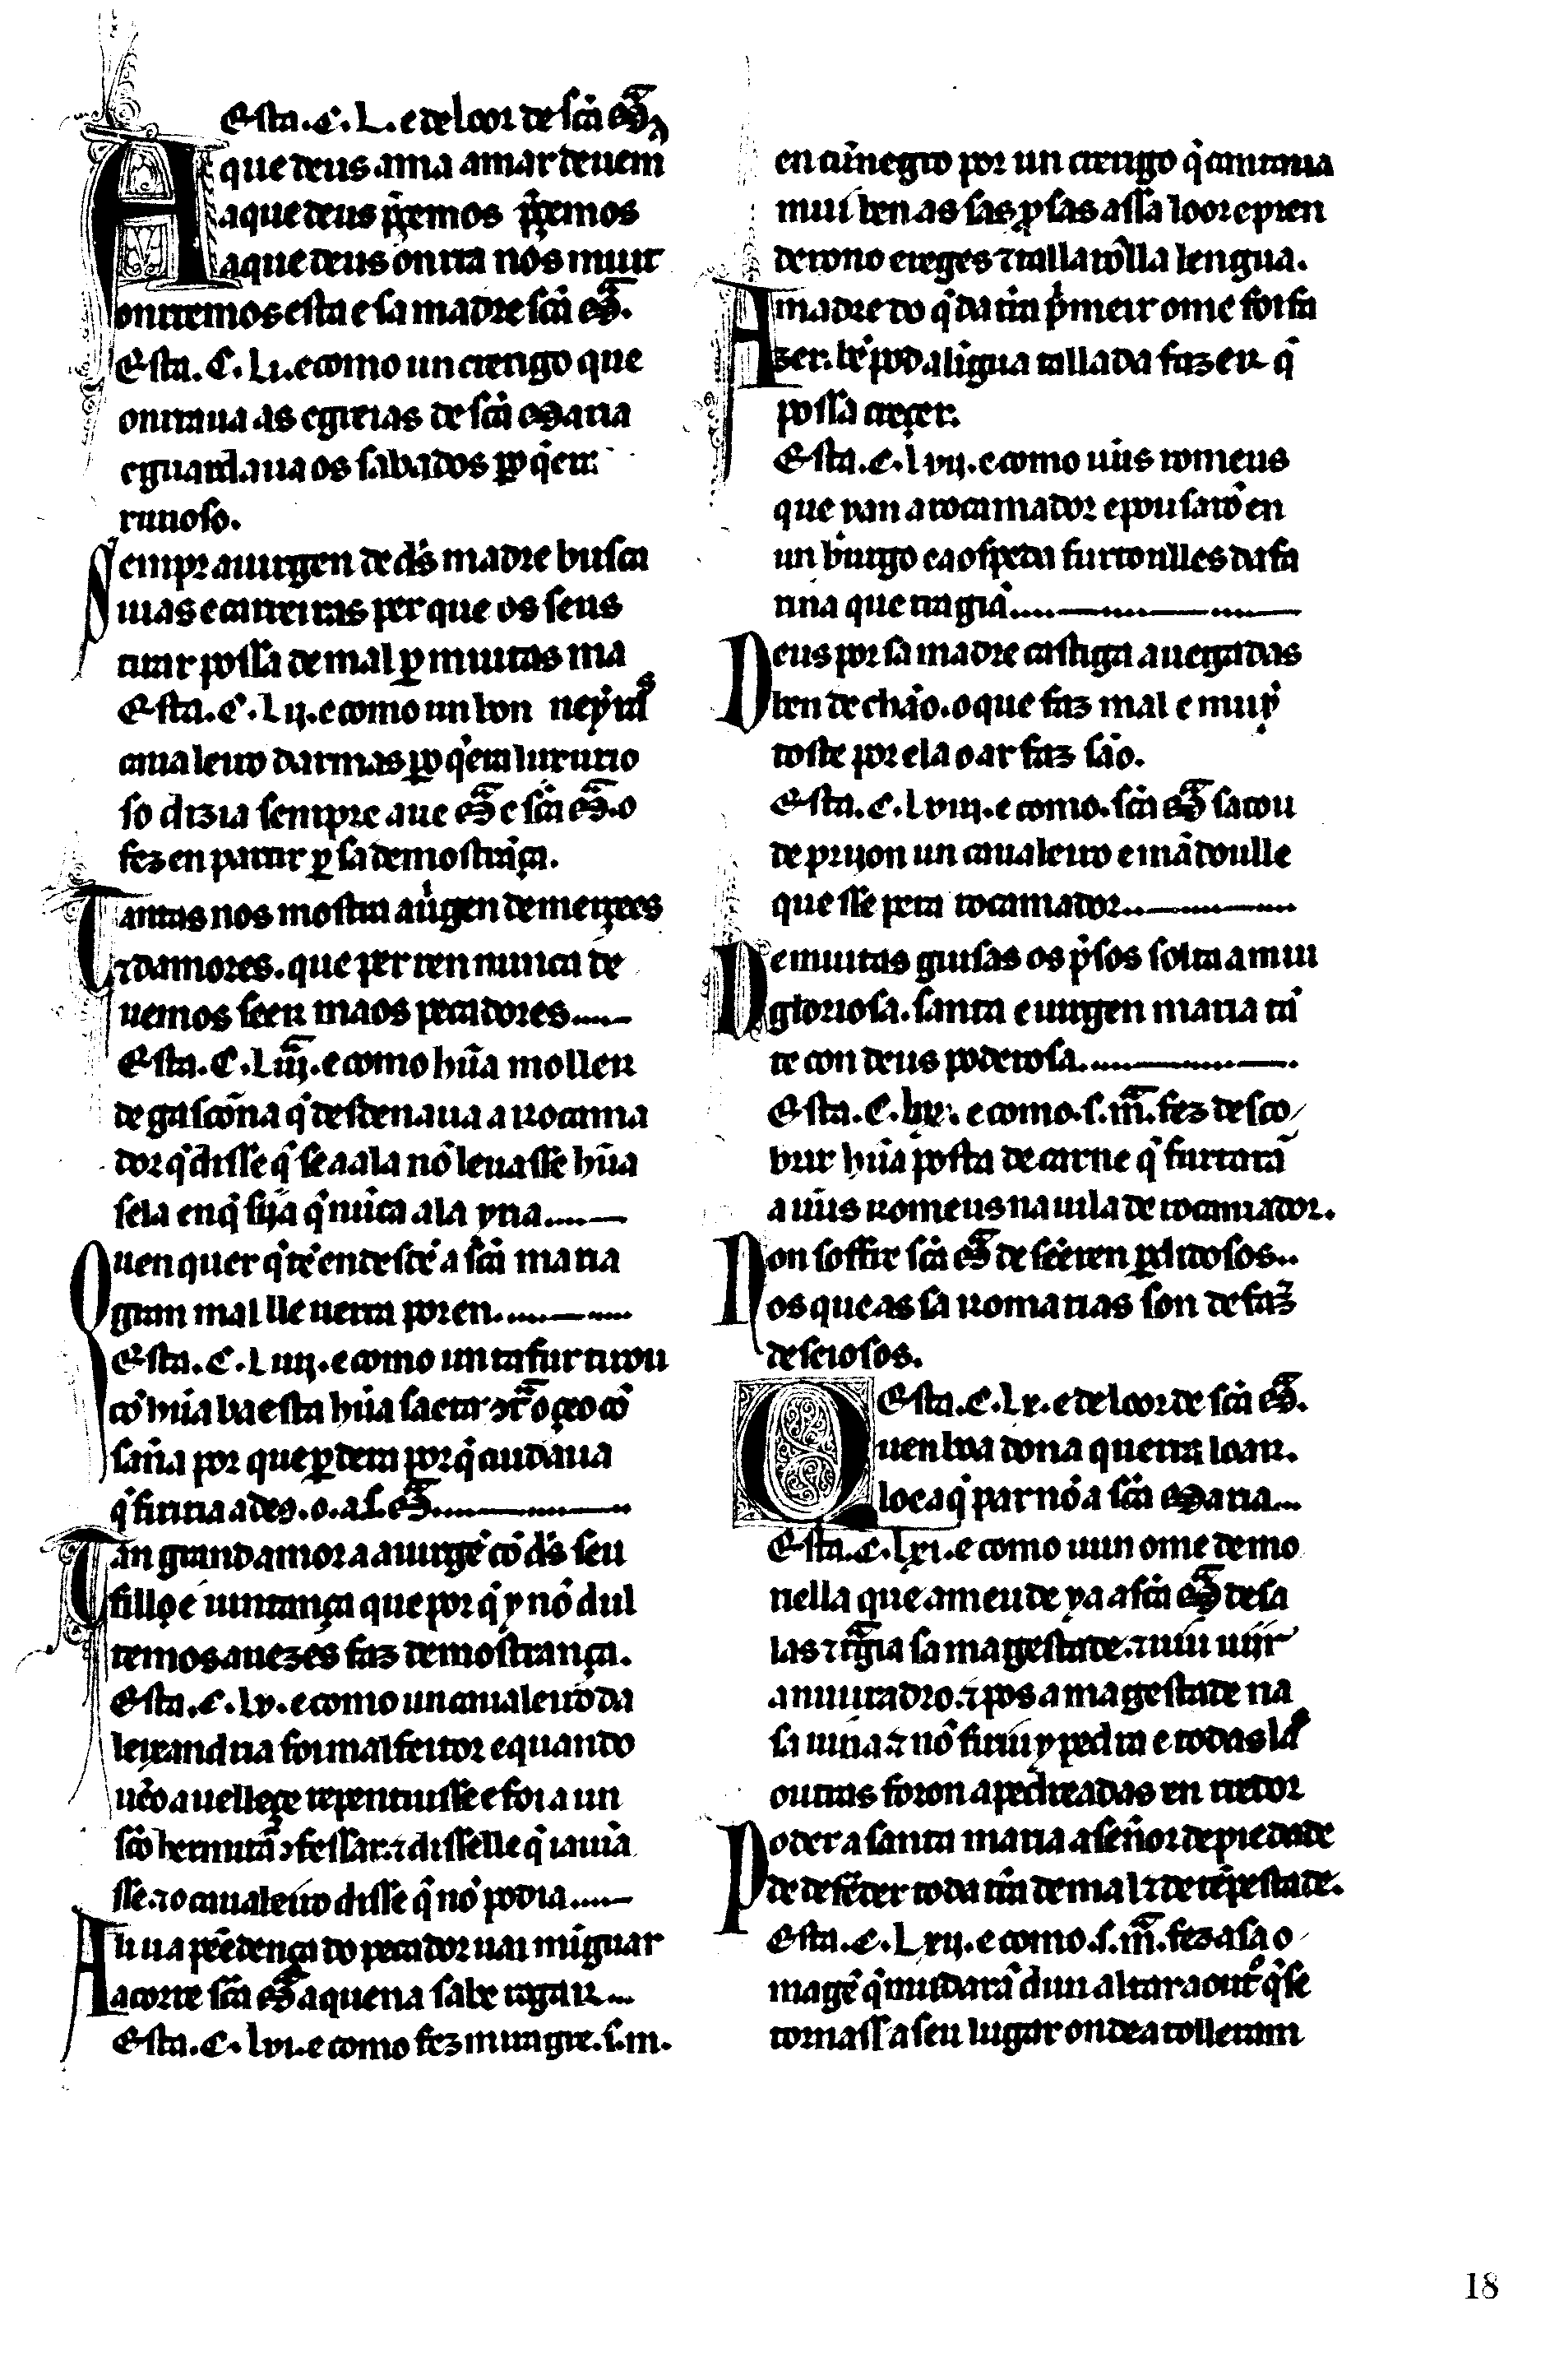 Esta .C. L. e de loor de scã Mã.
A que deus ama amar deuem̃
a que deus p̃çemos p̃çemos
a que deus onrra nós muit
onrremos esta e sa madre scã Mã.
Esta .C. Li. e como un crerigo que
onrraua as egreias de scã Maria
e guardaua os sabados p̱o q̇ era
runoso.
Sempr a uirgen de ds̃ madre busca
uias e carreiras per que os seus
tirar possa de mal p̱ muitas ma
neyras
Esta .C. Lij. e como un bon
caualeiro darmas p̱o q̇ era luxurio
so dizia sempre aue Mã e scã Mã. o
fez en partir p̱ sa demostrãça.
Tantas nos mostra a uirgen de merçees
⁊ damores. que per ren nunca de
uemos seer maos pecadores....—
Esta .C. Liij. e como hũa moller
de gascoña q̇ desdenaua a rocama
dor q̇ disse q̇ se aala nõ leuasse hũa
sela en q̇ sija q̇ nũca ala yria....—
Quen quer q̇ tẽ en desdẽ a scã maria
gran mal lle uerra por en.....—....
Esta .C. Liiij. e como un tafur tirou
cõ hũa baesta hũa saeta ꝯtra o çeo cõ
saña por que p̱dera por q̇ cuidaua
q̇ firiria a des. o. a s. Mã.....———
Tan grand amor a a uirgẽ cõ ds̃ seu
fillo e iuntança que por q̇ y nõ dul
temos a uezes faz demostrança.
Esta .C. Lv. e como un caualeiro da
leixandria foi malfeitor e quando
uẽo a uelleçe repentiusse e foi a un
scõ hermitã ꝯfessar. ⁊ disselle q̇ iauiã
sse. ⁊ o caualeiro disse q̇ nõ podia....—
A tiua pẽedença do pecador uai mĩguar
acorre scã Mã a quen a sabe rogar...
Esta .C. Lvi. e como fez miragre. s. m.
en cũnegro por un crerigo q̇ cantaua
mui ben as sas p̱sas a ssa loor e pren
derono ereges ⁊ tallarõlla lengua.
A madre do q̇ da terra p̃meir ome foi fa
zer. bẽ pod a lĩgua tallada fazer q̇
possa creçer.
Esta .C. Lvij. e como ũus romeus
que yan a rocamador e pousarõ en
un burgo e a ospeda furtoulles da fa
rina que tragiã....———....—
Deus por sa madre castiga a uegadas
ben de chão. o que faz mal e muy
toste por ela o ar faz são.
Esta .C. Lviij. e como. scã Mã sacou
de prijon un caualeiro e mãdoulle
que sse pera rocamador..—....—....
De muitas guisas os p̃sos solta a mui
gloriosa. santa e uirgen maria tã
te con deus poderosa....———....—.
Esta .C. Lix. e como. s. m̃a. fez desco/
brir hũa posta de carne q̇ furtarã
a ũus romeus na uila de rocamador.
Non soffre scã Mã de seeren p̱didosos..
os que as sa romarias son de faz̃
deseiosos.
Esta .C. Lx. e de loor de scã Mã.
Quen boa dona querra loar.
loe a q̇ par nõ a scã Maria...
Esta .C. Lxi. e como uun ome de mo
nella que ameude ya a scã Mã de sa
las ⁊ tragia sa magestade. ⁊ uiu uijr
a nuu tadro. ⁊ pos a magestade na
sa uiña ⁊ nõ firiu y pedra e todas las
outras foron apedreadas en redor
Poder a santa maria a señor de piedade
de defẽder toda terra de mal ⁊ de tẽpestade.
Esta .C. Lxij. e como. s. m̃a. fez a sa o
magẽ q̇ mudarã dun altar a outro q̇ se
tornass a seu lugar onde a tolleram
18